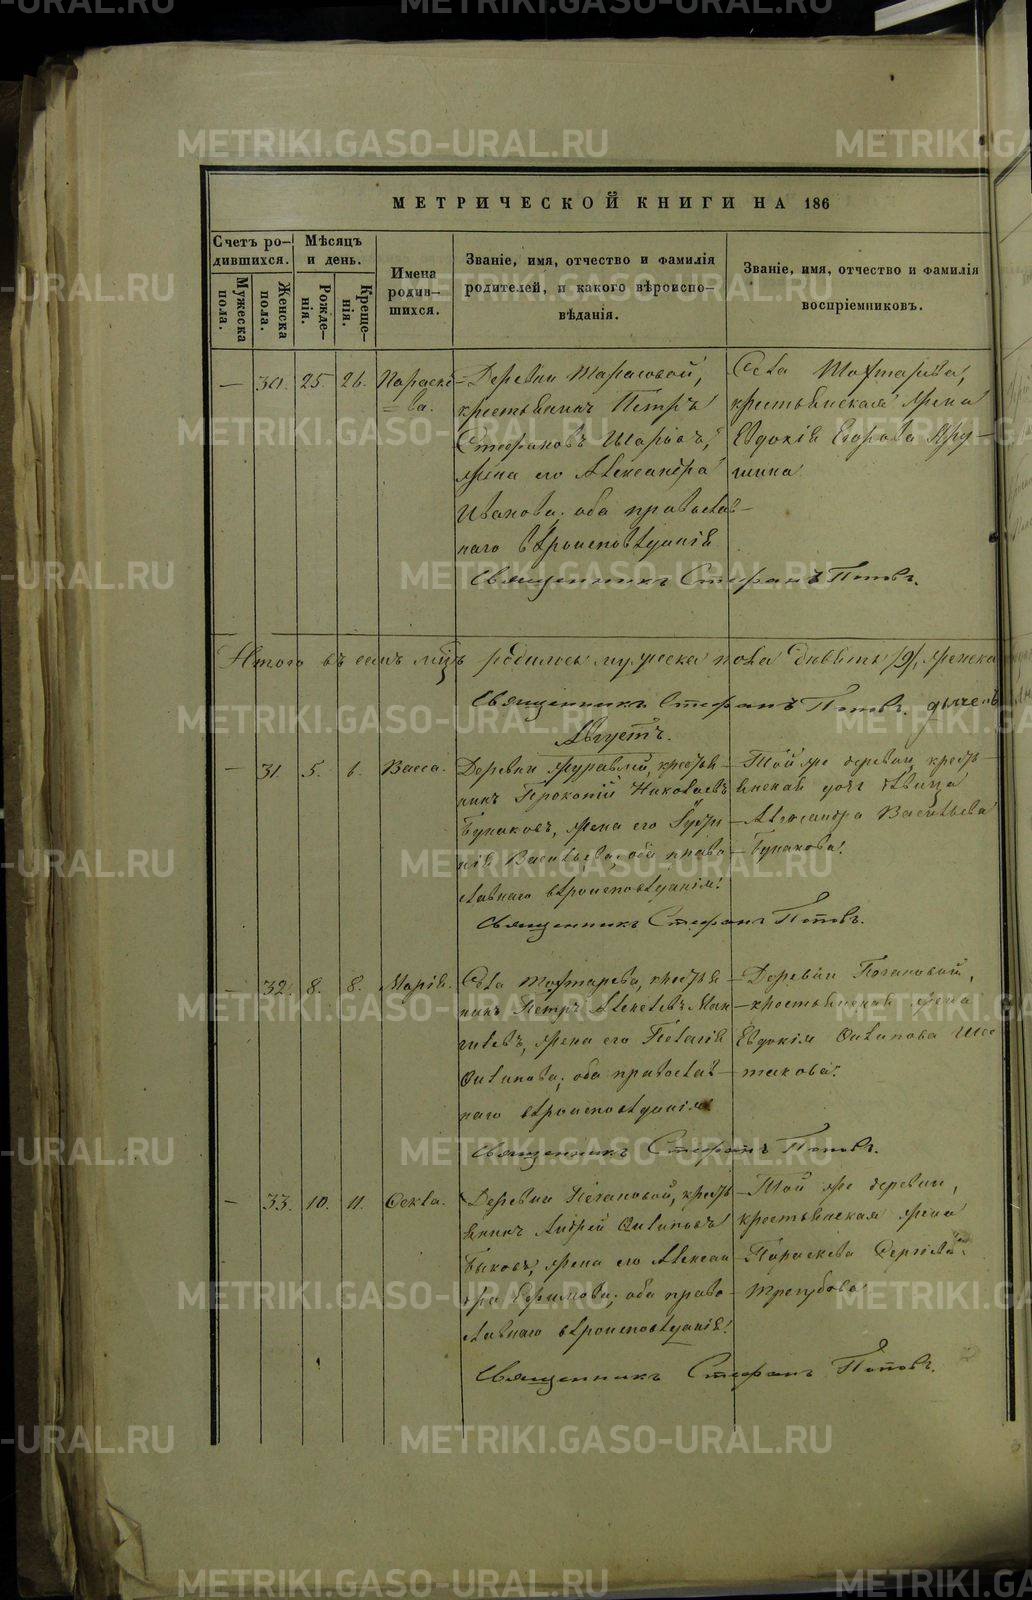 METRIKI.GASO-URAL.RU
МЕТРИЧЕСКОЙ КНИГИ НА 186
Счетъ ро-
дившихся.
Мужеска
пола.
Женска
пола.
Мѣсяцъ
и день.
Рожде-
нія.
Креще-
нія.
Имена
родив-
шихся.
Званіе, имя, отчество и фамилія
родителей, и какого вѣроиспо-
вѣданія.
Званіе, имя, отчество и фамилія
воспріемниковъ.
— 30. 25. 26. Параске
=ва.
Деревни Тарасовой,
крестьянинъ Петръ
Стефановъ
жена его Александра
Иванова; оба православ-
наго вѣроисповѣданія
Села
крестьянская жена
Евдокія Егорова
Священникъ Стефанъ Поповъ.
Итого въ семъ родилось мужеска пола девять /9/, женска
Священникъ Стефанъ Поповъ.
Августъ.
— 31. 5. 6. Васса.
Деревни Журавлей, крестья-
нинъ Прокопій Николаевъ
Бунаковъ, жена его
Васильева; оба право-
славнаго вѣроисповѣданія.
Той же деревни, кресть-
янская дочь дѣвица
Александра Васильева
Бунакова.
Священникъ Стефанъ Поповъ.
— 32. 8. 8. Марія.
Села крестья-
нинъ Петръ Алексѣевъ
жена его Пелагія
Филипова; оба православ-
наго вѣроисповѣданія
Деревни
крестьянская жена
Евдокія Филипова
Священникъ Стефанъ Поповъ.
— 33. 10. 11. Фекла.
Деревни кресть-
янинъ Андрей Филиповъ
Быковъ, жена его Алексан-
дра Ефимова; оба право-
славнаго вѣроисповѣданія.
Той же деревни,
крестьянская жена
Параскева Сергіева
Трегубова
Священникъ Стефанъ Поповъ.